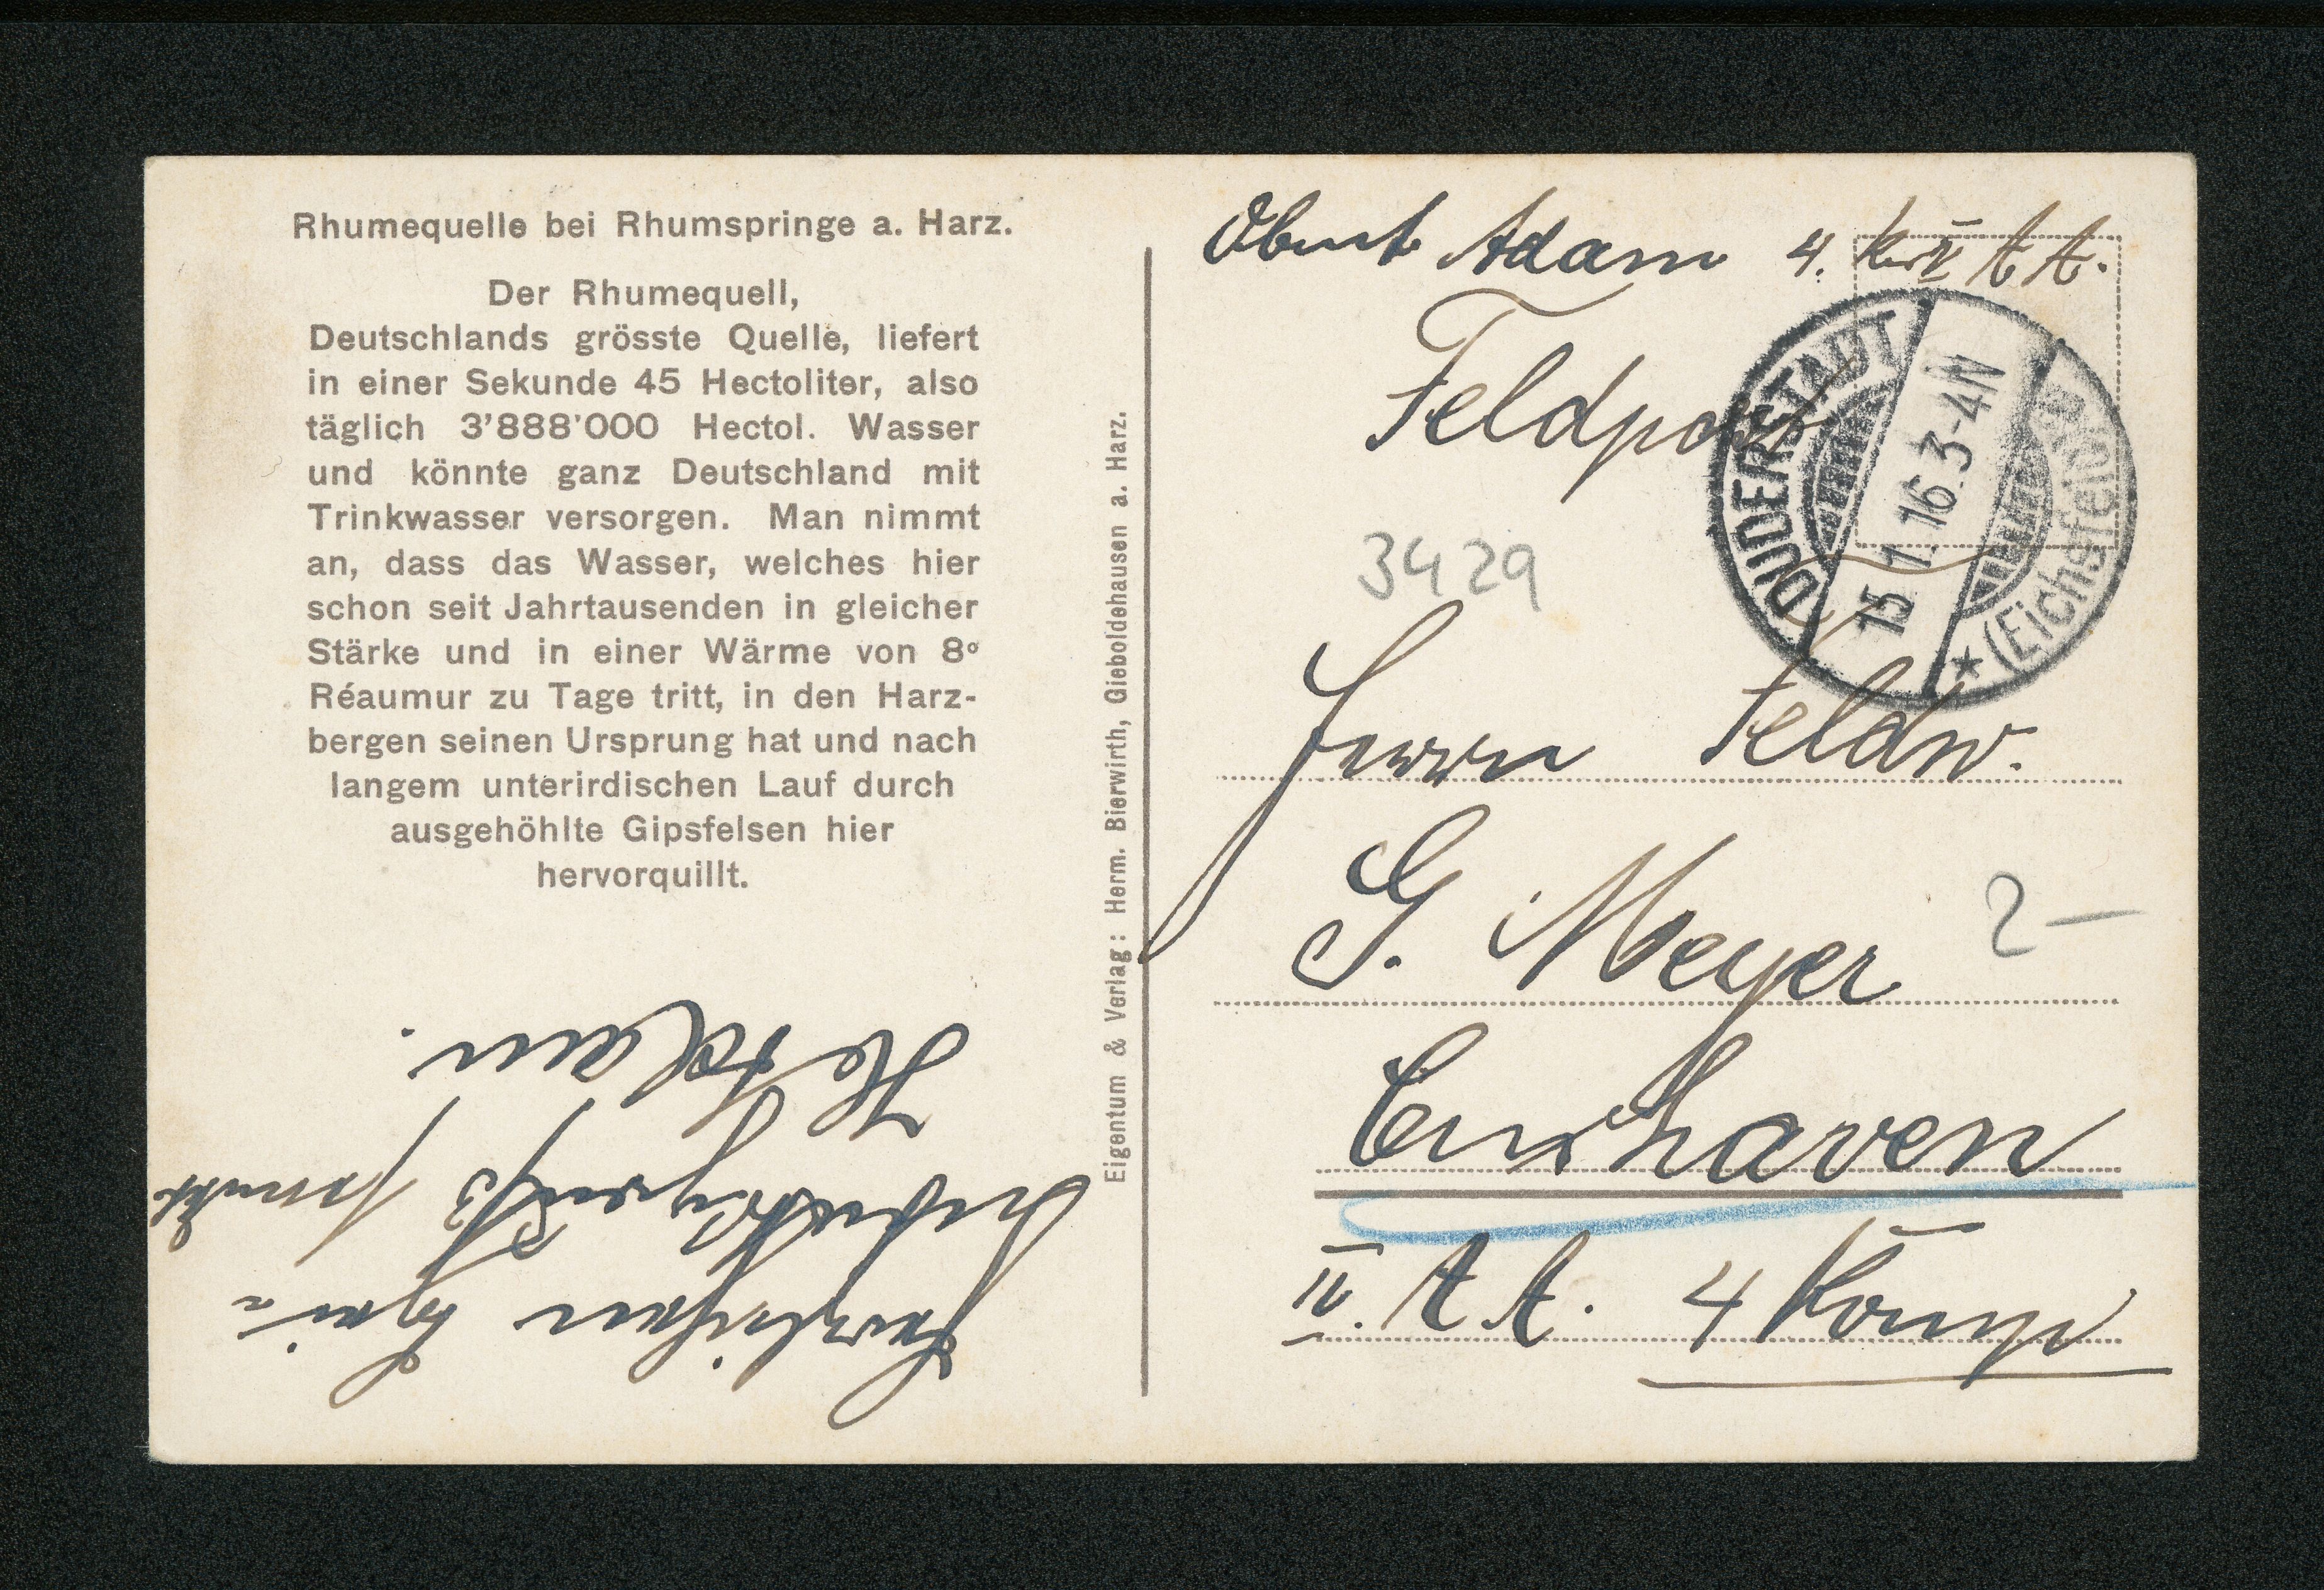 Rhumequelle bei Rhumspringe a. Harz.
Der Rhumequell,
Deutschlands grösste Quelle, liefert
in einer Sekunde 45 Hectoliter, also
täglich 3'888'000 Hectol. Wasser
und könnte ganz Deutschland mit
Trinkwasser versorgen. Man nimmt
an, dass das Wasser, welches hier
schon seit Jahrtausenden in gleicher
Stärke und in einer Wärme von 8°
Réaumur zu Tage tritt, in den Harz-
bergen seinen Ursprung hat und nach
langem unterirdischen Lauf durch
ausgehöhlte Gipsfelsen hier
hervorquillt.
Herzlichen
Eigentum & Verlag: Herm. Bierwirth, Gieboldehausen a. Harz.
Adam 4. A A.
Feldpost
DUDERSTADT
15.1.16.3-4N
* (Eichsfeld)
3429
Herrn Feldw.
G. Meyer
2-
Cuxhaven
IV. A A. 4 Komp